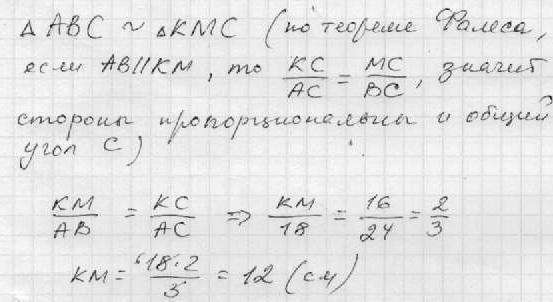 △ ABC ~ △KMC (по теореме Фалеса,
если AB∥KM, то KC/AC = MC/BC, значит
стороны пропорциональны и общий
угол C)
KM/AB = KC/AC ⇒ KM/18 = 16/24 = 2/3
KM = 18·2/3 = 12 (см)